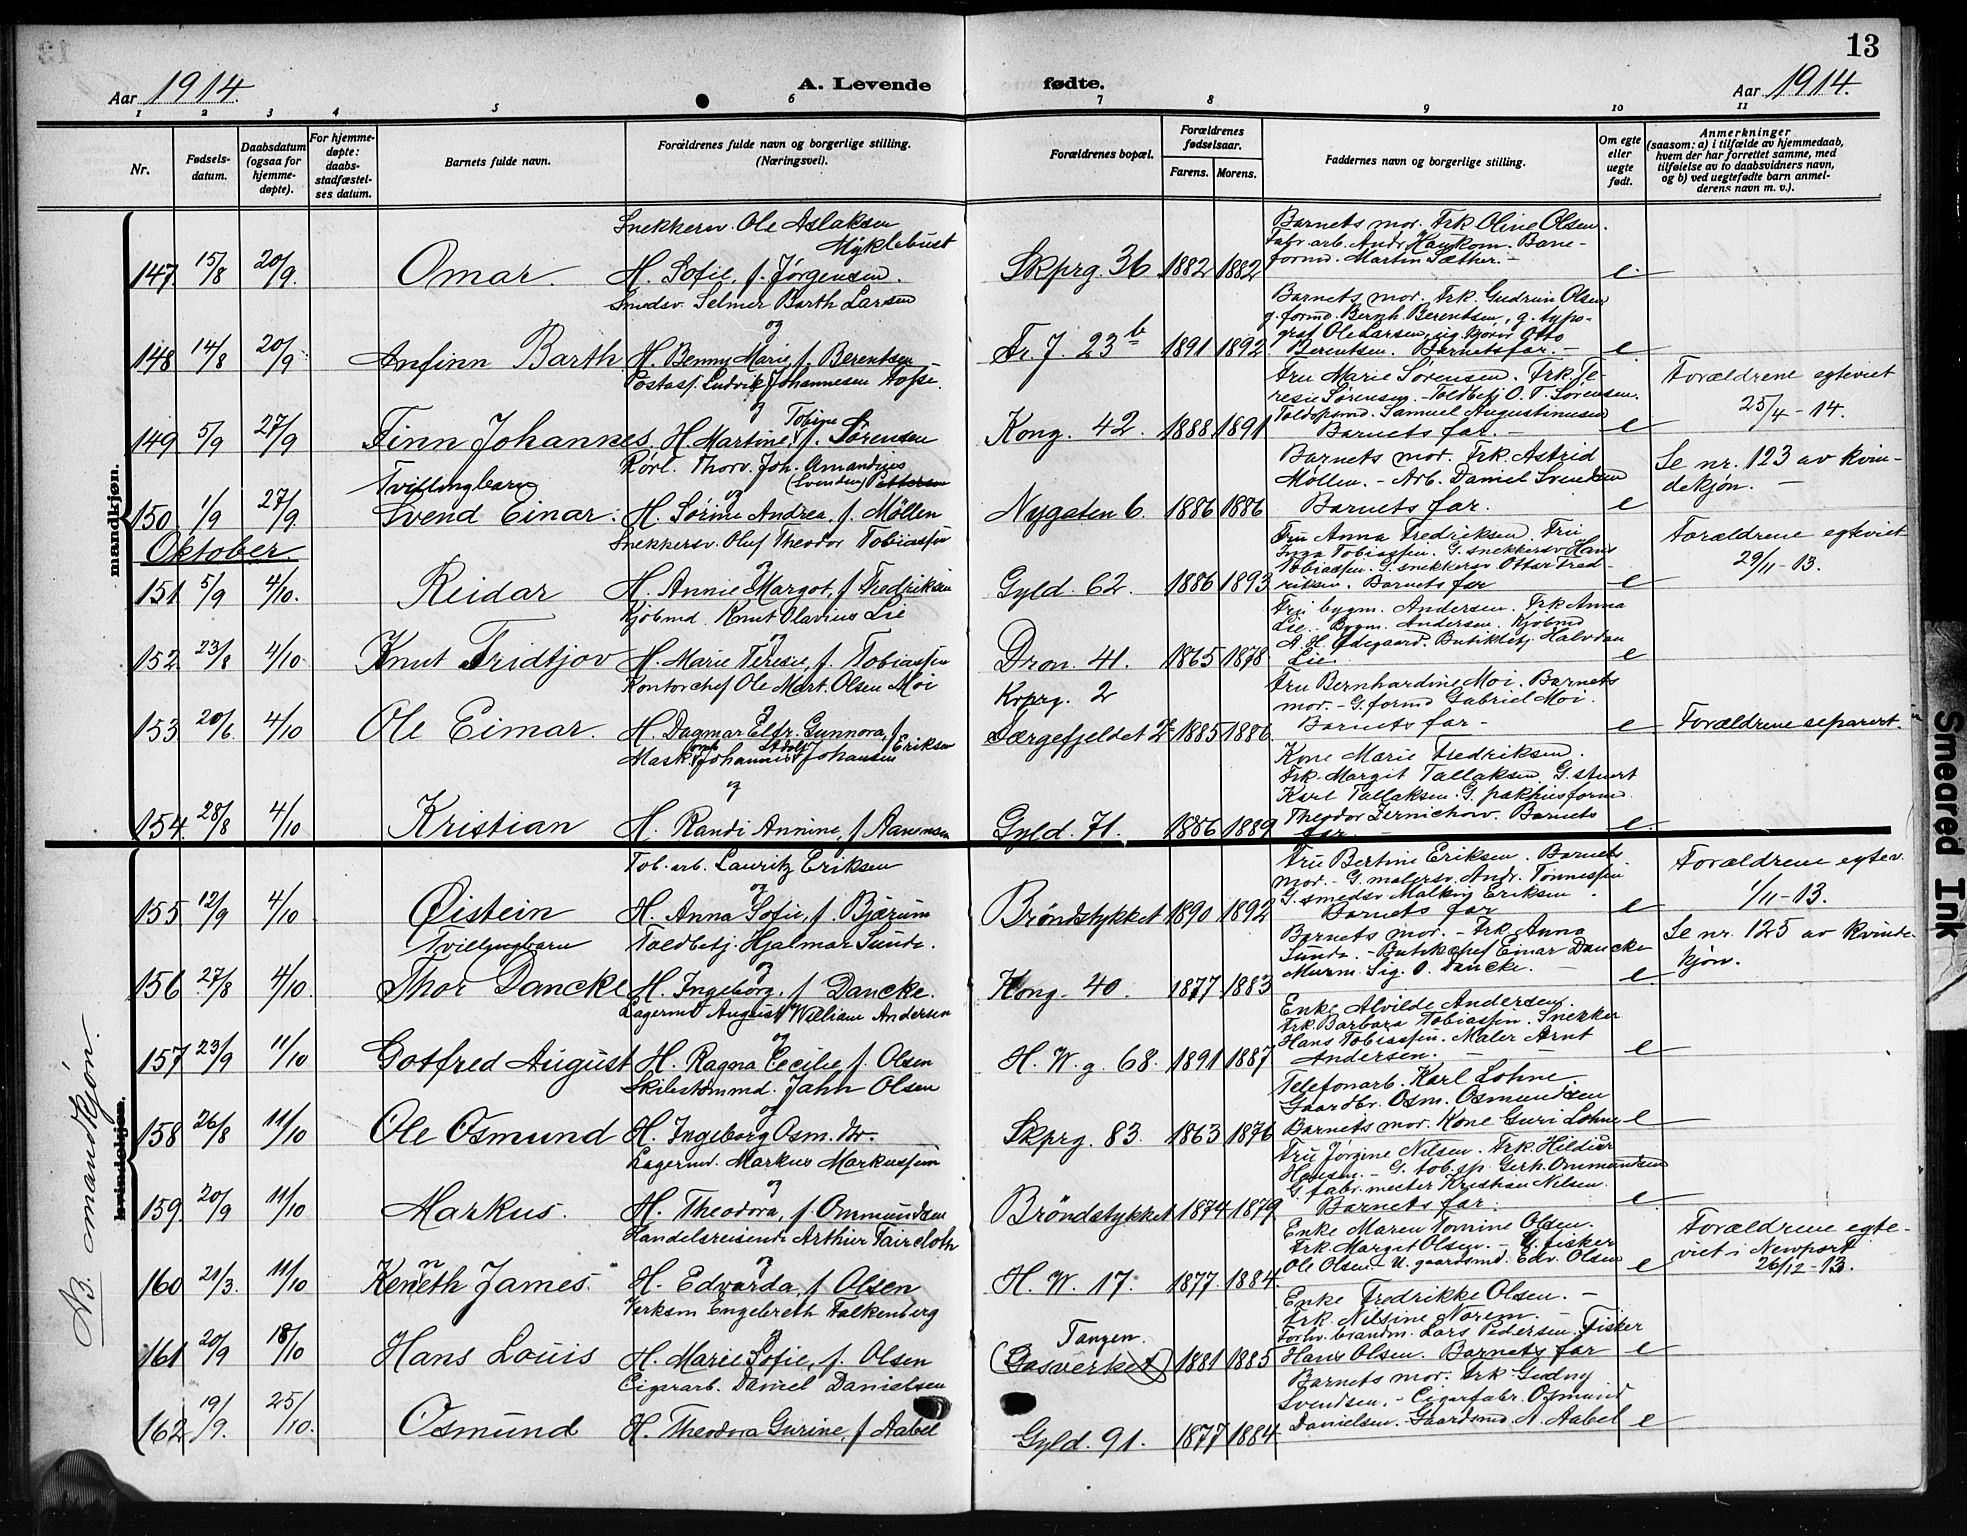 13
Aar 1914.
A. Levende fødte.
Aar 1914.
1 2 3 4 5 6 7 8 9 10 11
Nr.
Fødsels-
datum.
Daabsdatum
(ogsaa for
hjemme-
døpte).
For hjemme-
døpte:
daabs-
stadfæstel-
ses datum.
Barnets fulde navn.
Forældrenes fulde navn og borgerlige stilling.
(Næringsvei).
Forældrenes bopæl.
Forældrenes
fødselsaar.
Farens. Morens.
Faddernes navn og borgerlige stilling.
Om egte
eller
uegte
født.
Anmerkninger
(saasom: a) i tilfælde av hjemmedaab,
hvem der har forrettet samme, med
tilføielse av to daabsvidners navn,
og b) ved uegtefødte barn anmel-
derens navn m. v.).
mandkjøn.
147. 15/8 20/9. Omar.
Snekkersv. Ole Aslaksen
Myklebust
H. Sofie, f. Jørgensen.
Skprg. 36 1882 1882
Barnets mor. Frk Oline Olsen.
Fabr. arb. Andr Haukom. Bane-
formd. Martin Sæther. -
e.
148 14/8 20/9. Anfinn Barth
Smedsv. Selmer Barth Larsen
og
H. Benny Marie, f. Berentsen
Fr J. 23 b 1891 1892
Barnets mor. Frk. Gudrun Olsen
g. formd. Bernh Berentsen, g. typo-
graf Ole Larsen, Otto
Berentsen. Barnets far. -
e
149 5/9 27/9 Finn Johannes
Postass. Ludvik Johannesen
og
H. Martine Tobine, f. Sørensen
Kong. 42. 1888 1891
Fru Marie Sørensen. Frk Te
resie Sørensen. - Toldbetj O. T. Sørensen.
Toldopsmd. Samuel Augustinusen
Barnets far. -
e
Forældrene egteviet
25/4 - 14.
150 1/9 27/9.
Tvillingbarn
Svend Einar.
Rørl. Thorv. Joh. Amandius
(Svendsen) Pettersen
og
H. Sørine Andrea, f. Möllen
Nygaten 6. 1886 1886
Barnets mor. Frk. Astrid
Møllen. - Arb. Daniel Svendsen
Barnets far.
e
Se nr. 123 av kvin-
dekjøn. -
Oktober.
151 5/9 4/10. Reidar
Snekkersv. Oluf Theodor Tobiassen
og
H. Annie Margot, f Fredriksen
Gyld. 62. 1886 1893
Fru Anna Fredriksen. Fru
Inga Tobiassen. G. snekkersv Hans
Tobiassen. G. snekkersv Ottar Fred-
riksen. Barnets far
e
Forældrene egteviet
29/11 - 13.
152 23/8 4/10. Knut Fridtjov
Kjøbmd. Knut Olavius Lie
og
H. Marie Teresie, f. Tobiassen
Dron. 41. 1865 1878
Fru bygm. Andersen. Frk Anna
Lie. Bygm. Andersen. Kjøbmd
A. H. Ødegaard. Butikbetj Halvdan
Lie.
e
153 20/6 4/10 Ole Eimar.
Kontorchef Ole Mart. Olsen Moi
og
H. Dagmar Elfr. Gunnora, f
Eriksen
Krprg. 2
Særgefjeldet 1885 1886
Fru Bernhardine Moi. Barnets
mor. - G. formd Gabriel Moi.
Barnets far -
e
Forældrene separert.
154 28/8 4/10 Kristian
Mask. Johannes Adolf Johansen
og
H. Randi Annine, f Aanensen
Gyld. 71. 1886 1889
Kone Marie Fredriksen.
Frk. Margit Tallaksen. G. stuert
Karl Tallaksen. G. pakhusform
Theodor Jernichow. Barnets
far -
e.
NB. mandkjøn.
kvindekjøn.
155 12/9 4/10 Øistein
Tob. arb. Lauritz Eriksen
og
H. Anna Sofie, f. Bjærum
Brøndstykket 1890 1892
Fru Bertine Eriksen. Barnets
mor. - G. malersv. Andr. Tønnessen
G. smedsv Malkus Eriksen
Barnets far
e
Forældrene egtev.
1/11 - 13.
156 27/8 4/10.
Tvillingbarn
Thor Dancke
Toldbetj. Hjalmar Sunde.
og
H. Ingeborg, f Dancke.
Kong. 40. 1877 1883
Barnets mor. - Frk. Anna
Sunde. - Butikchef Einar Dancke
Murm. Sig. O. Dancke. -
e.
Se nr. 125 av kvinde-
kjøn.
157 23/9 11/10 Gotfred August
Lagermd August William Andersen
og
H. Ragna Cecilie, f. Olsen
H. W. g. 68. 1891 1887
Enke Alvilde Andersen.
Frk. Barbara Tobiassen. Snekker
Hans Tobiassen. Maler Arnt
Andersen. -
e
158 26/8 11/10 Ole Osmund
Skibstømmd. Jahn Olsen
og
H. Ingeborg Osm. dr.
Skprg. 83. 1863 1876
Telefonarb. Karl Lohne
Gaardbr. Osm. Osmundsen
Barnets mor. Kone Guri Lohne
e
159. 20/9 11/10 Markus.
Lagermd. Markus Markussen
og
H. Theodora, f. Ommundsen
Brøndstykket 1874 1879
Fru Jørgine Nilsen. Frk. Hildur
Hansen. - G. tob.sp. Gerh. Ommundsen
G. fabr.mester Kristian Nilsen.
Barnets far.
e
160 21/3. 11/10 Kenneth James.
Handelsreisende Arthur Faircloth
og
H. Edvarda, f Olsen
H. W. 17. 1877 1884.
Enke Maren Tomine Olsen.
Frk. Margit Olsen. - G. fisker
Ole Olsen. - U. gaardsmd. Edv. Olsen
e
Forældrene egte-
viet i Newport
26/12 - 13.
161 20/9 18/10 Hans Louis
Verksm Engebreth Falkenberg
og
H. Marie Sofie, f. Olsen
Tangen.
(Gasverket) 1881 1885
Enke Fredrikke Olsen. -
Frk. Nilsine Norem. -
Forhv. brandm. Lars Pedersen. Fisker
Hans Olsen. Barnets far
e
162 19/9. 25/10. Osmund
Cigararb. Daniel Danielsen
H. Theodora Gurine, f Aabel
Gyld. 91. 1877 1884.
Barnets mor. Frk Gudny
Svendsen. - Cigarfabr. Osmund
Danielsen. Gaardsmd N. Aabel
e
Smeared Ink